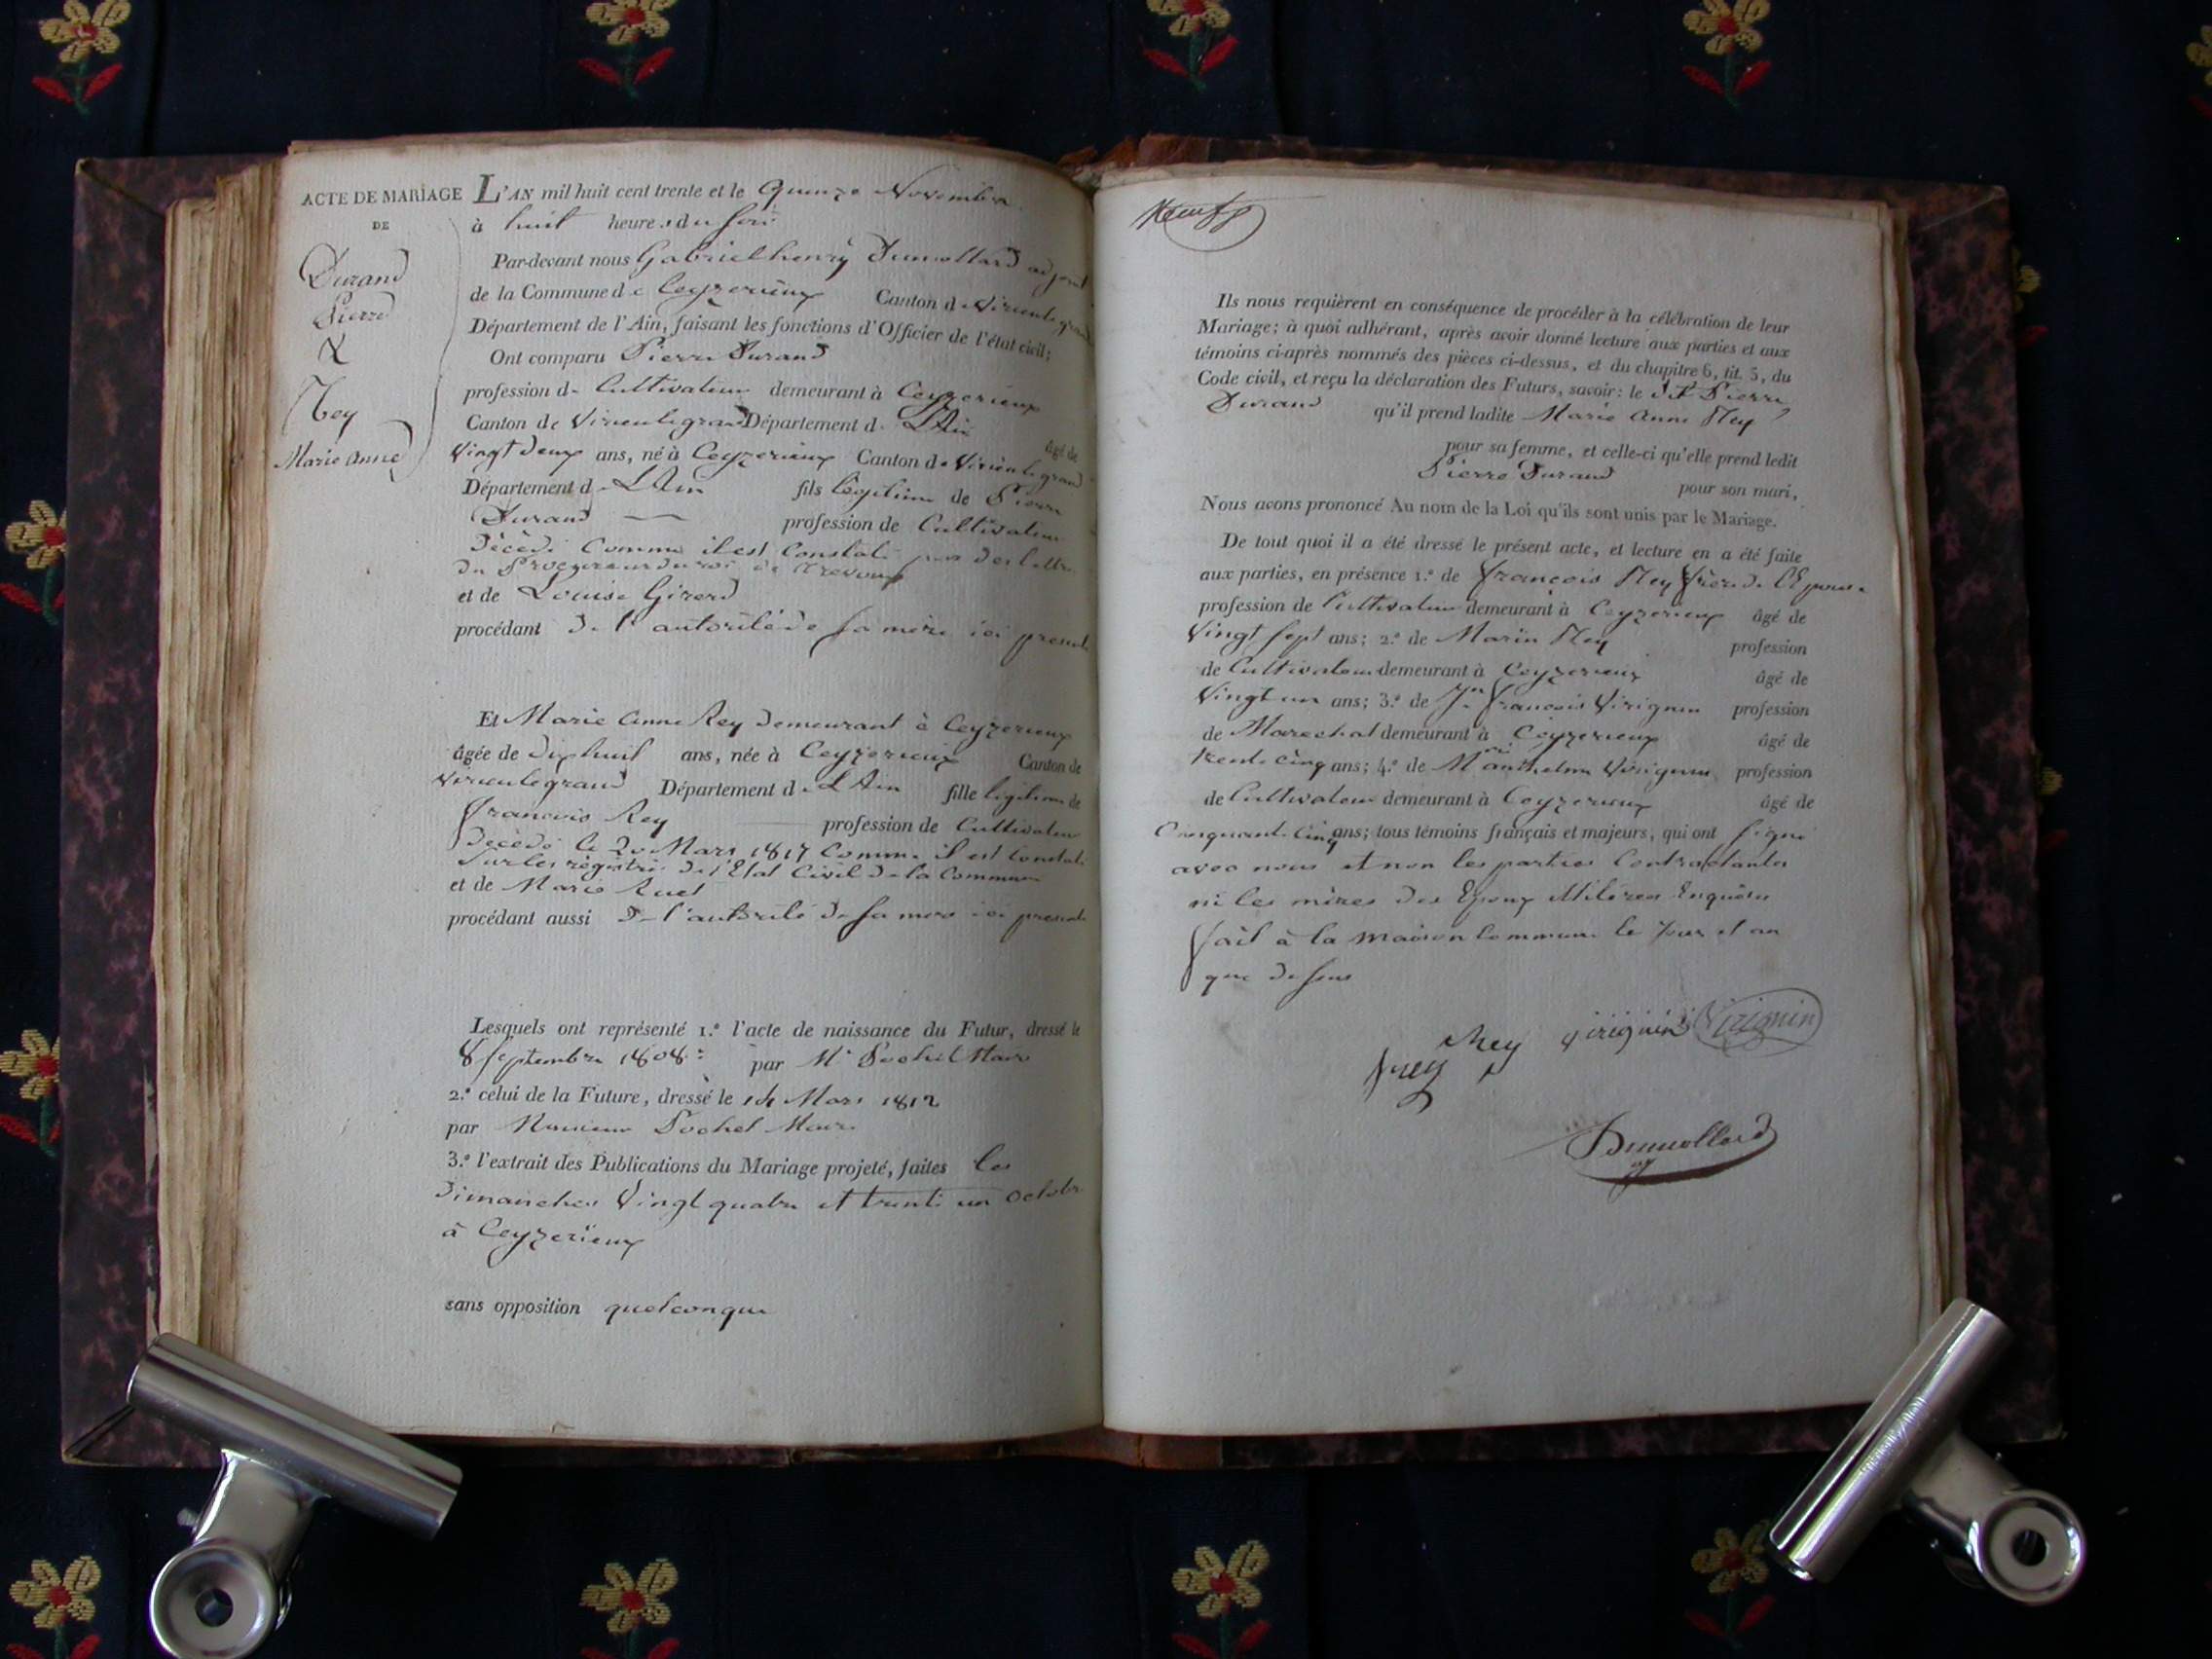 ACTE DE MARIAGE
DE
Durand
Pierre
&
Rey
Marie Anne
L'AN mil huit cent trente et le Quinze Novembre
à huit heures du soir
Par-devant nous Gabriel henry Dumollard adjoint
de la Commune de Ceyzerieux Canton de Virieulegrand
Département de l'Ain, faisant les fonctions d'Officier de l'état civil;
Ont comparu Pierre Durand
profession de Cultivateur demeurant à Ceyzerieux
Canton de Virieulegrand Département de L'Ain âgé de
Vingt deux ans, né à Ceyzerieux Canton de Virieulegrand
Département de L'Ain fils légitime de Pierre
Durand profession de Cultivateur
Décédé Comme il est Constaté par des lettres
du Procureur du roi de Trevoux
et de Louise Girerd
procédant de l'autorité de sa mère ici présente
Et Marie Anne Rey demeurant à Ceyzerieux
âgée de dix huit ans, née à Ceyzerieux Canton de
Virieulegrand Département de L'Ain fille légitime de
François Rey profession de Cultivateur
Décédé le 20 Mars 1817 Comme il est Constaté
sur les régistres de l'Etat Civil de la Commune
et de Marie Ruet
procédant aussi de l'autorité de sa mère ici présente
Lesquels ont représenté 1.º l'acte de naissance du Futur, dressé le
8 Septembre 1808 par Mr Pochet Maire
2.º celui de la Future, dressé le 14 Mars 1812
par Monsieur Pochet Maire
3.º l'extrait des Publications du Mariage projeté, faites les
Dimanches Vingt quatre et trente un octobre
à Ceyzerieux
sans opposition quelconque
Ils nous requièrent en conséquence de procéder à la célébration de leur
Mariage; à quoi adhérant, après avoir donné lecture aux parties et aux
témoins ci-après nommés des pièces ci-dessus, et du chapitre 6, tit. 5, du
Code civil, et reçu la déclaration des Futurs, savoir: le dt Pierre
Durand qu'il prend ladite Marie Anne Rey
pour sa femme, et celle-ci qu'elle prend ledit
Pierre Durand pour son mari,
Nous avons prononcé Au nom de la Loi qu'ils sont unis par le Mariage.
De tout quoi il a été dressé le présent acte, et lecture en a été faite
aux parties, en présence 1.º de François Rey frère de l'Epouse
profession de Cultivateur demeurant à Ceyzerieux âgé de
Vingt sept ans; 2.º de Marin Rey profession
de Cultivateur demeurant à Ceyzerieux âgé de
Vingt un ans; 3.º de Jn François Virignin profession
de Marechal demeurant à Ceyzerieux âgé de
trente cinq ans; 4.º de Anthelme Virignin profession
de Cultivateur demeurant à Ceyzerieux âgé de
Cinquante Cinq ans; tous témoins français et majeurs, qui ont signé
avec nous et non les parties Contractantes
ni les mères des Epoux illiteres Enquises
fait à la maison Commune le jour et an
que dessus
Rey Virignin Virignin
frey
Dumollard